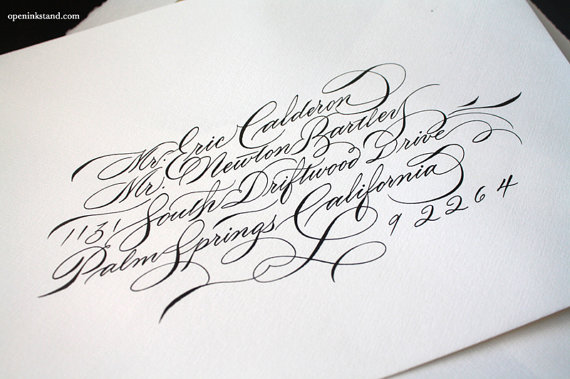 openinkstand.com
Mr. Eric Calderon
Mr. Newton Bartley
1131 South Driftwood Drive
Palm Springs California
92264